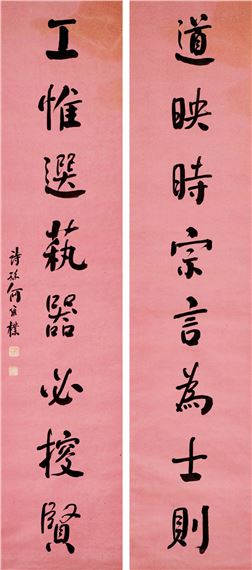 道映時宗言為士則
工惟選蓺器必授賢
詩孫何維樸